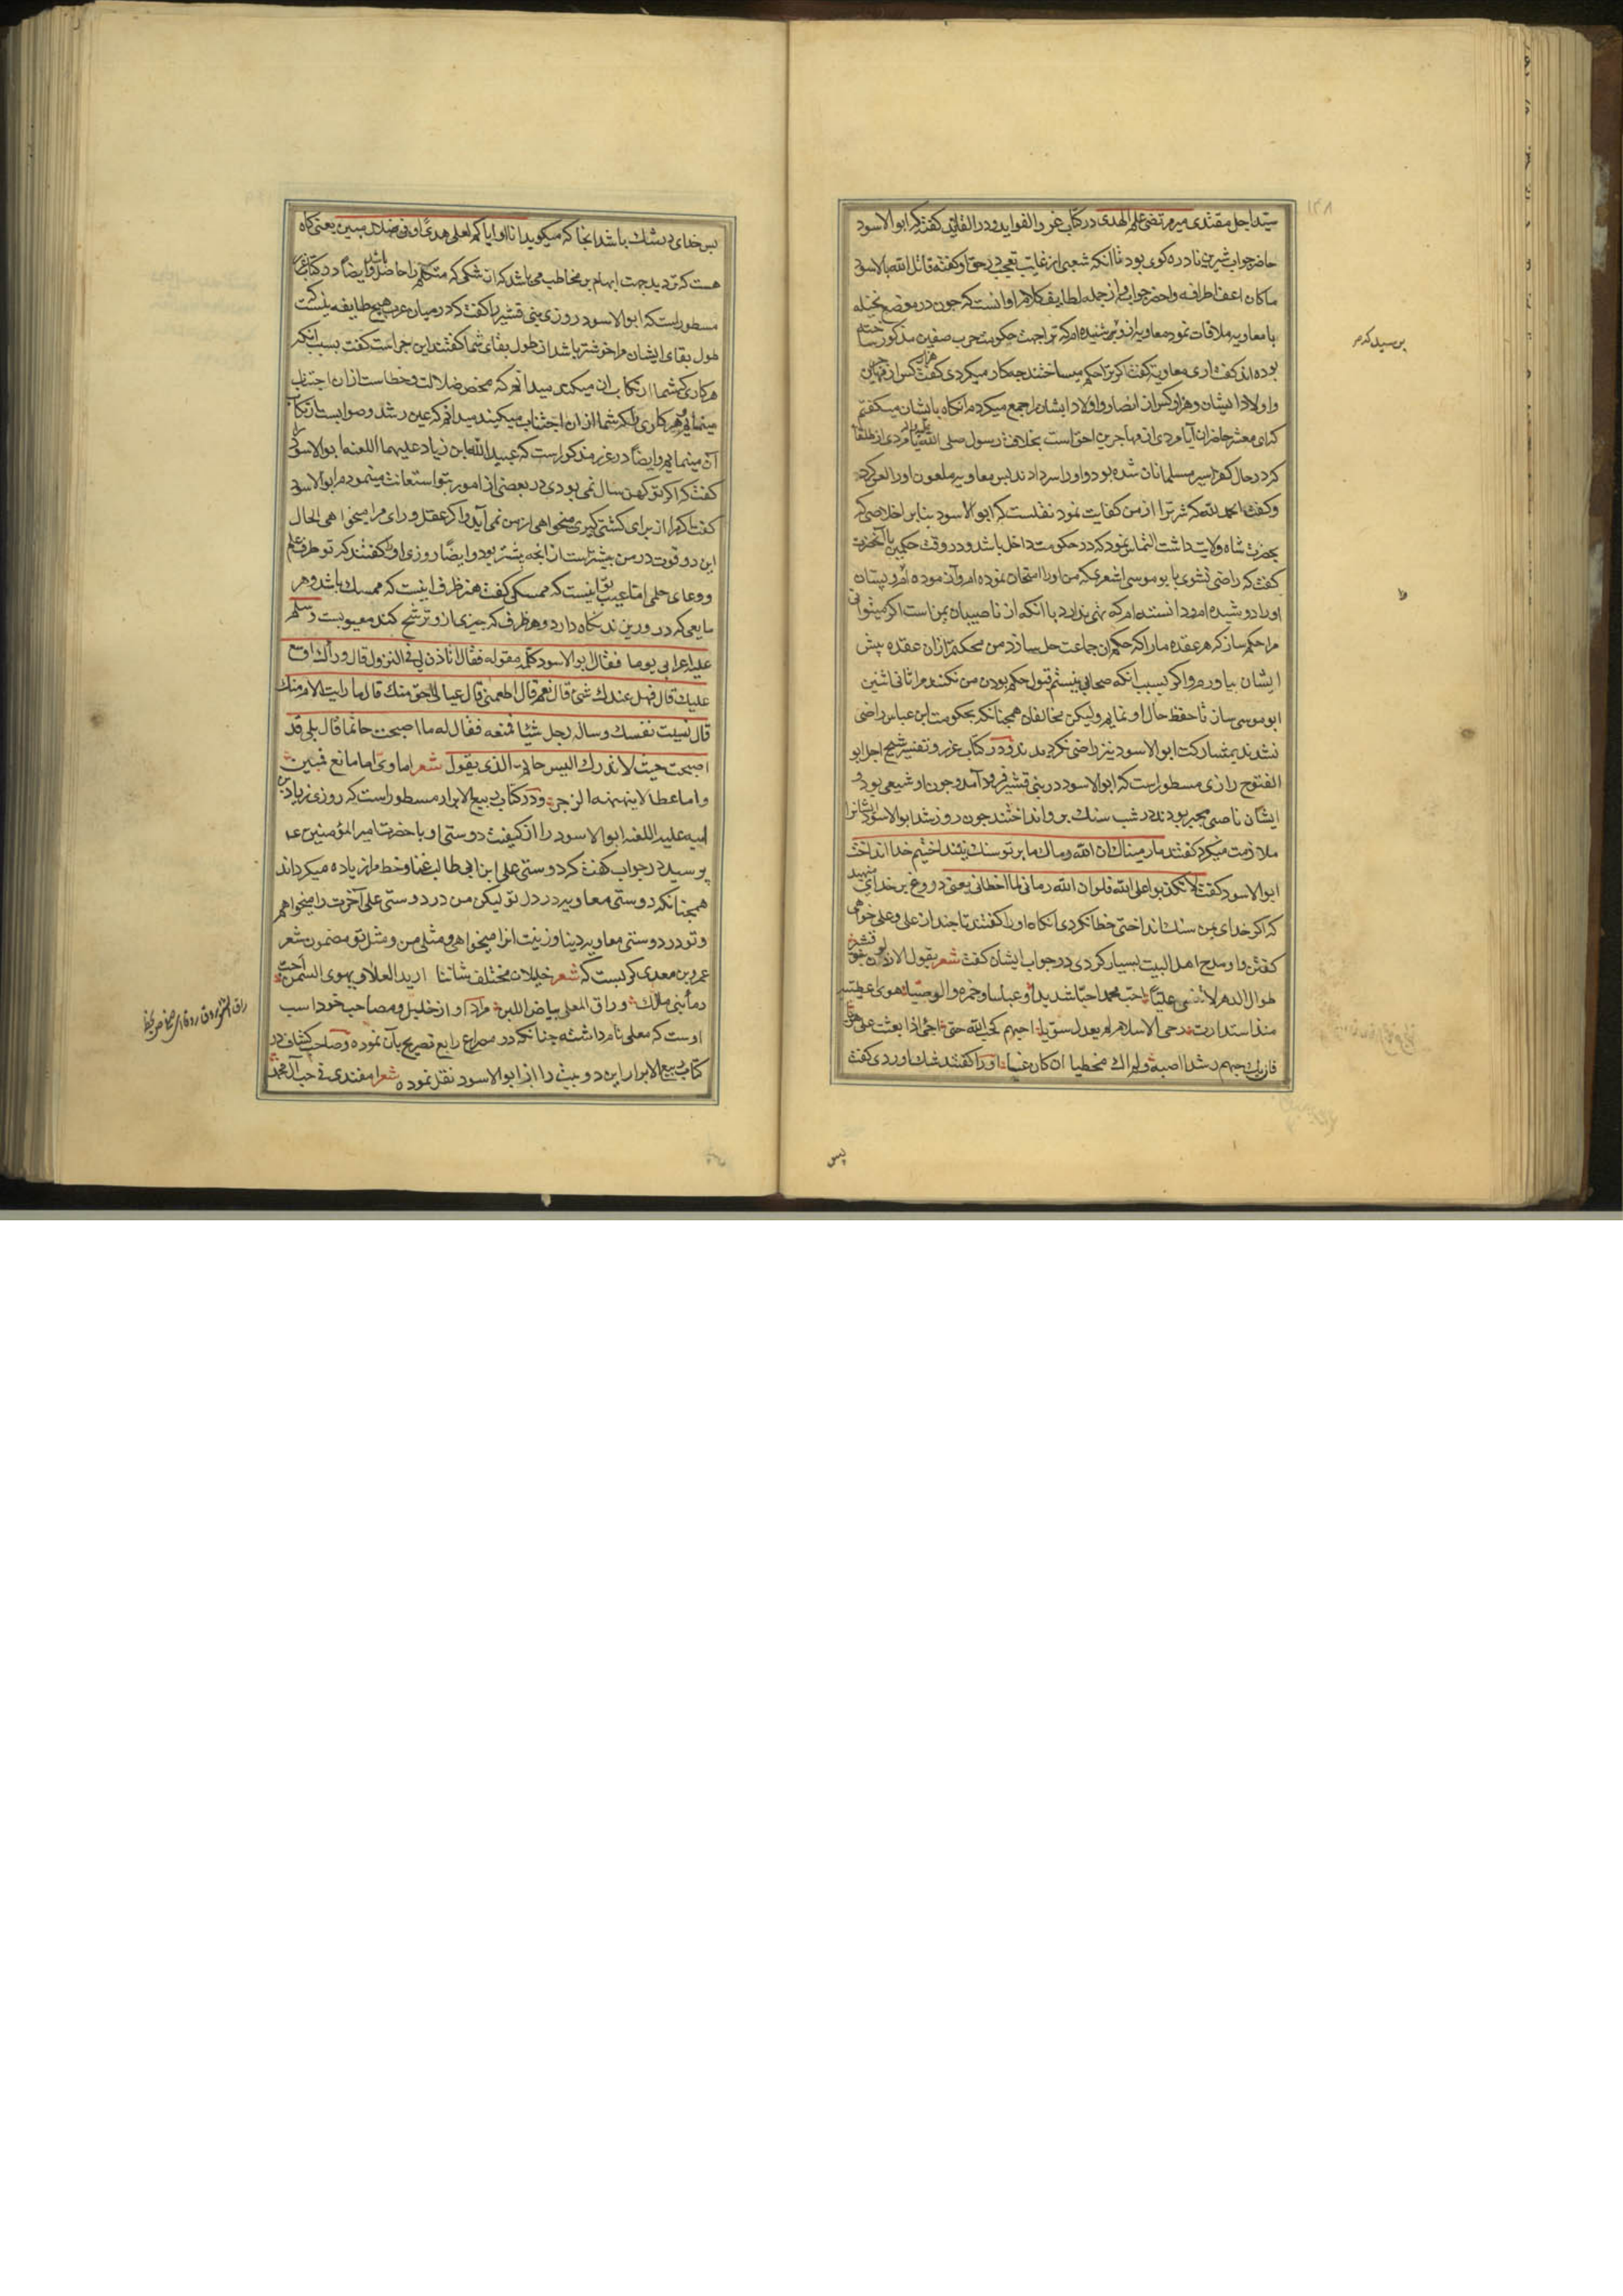 سید اجل مقتدی میر مرتضی علم الهدی در کتاب غرر الفواید و درر القلائد گفته که ابو الاسود
حاضر جواب شیرین نادره کوی بود تا آنکه شعبی از غایت تعجب در حق او گفته قاتل الله ابا الاسود
ما کان اعف اطرافه و احضر جوابه از جمله لطایف کلام او آنست که چون در موضع نخیله
با معاویه ملاقات نمود معاویه از وی شنیده ام که ترا جهت حکومت حرب صفین مذکور ساخته
بوده اند گفت آری معاویه گفت اگر ترا حکم میساختند چه کار میکردی گفت هزار کس از مهاجرین
و اولاد ایشان و هزار کس از انصار و اولاد ایشان را جمع میکردم آنکاه بایشان میگفتم
که ای معشر حاضران آیا مردی از مهاجرین احق است بخلافت رسول صلی الله علیه و آله یا مردی از طلقا
که در حال کفر اسیر مسلمانان شده بود و او را سر دادند پس معاویه ملعون او را لعن کرد
و گفت الحمد لله که شر ترا از من کفایت نمود نقلست که ابو الاسود بنابر اخلاصی که
بحضرت شاه ولایت داشت التماس نمود که در حکومت داخل باشد و در وقت حکمین با آنحضرت
گفت که راضی نشوی بابو موسی اشعری که من او را امتحان نموده ام و آزموده ام و پستان
او را دوشیده ام و دانسته ام که نمی ندارد با آنکه از ناصبیان یمن است اگر میتوانی
مرا حکم ساز که هر عقده ما را که حکم آن جماعت حل سازد من محکم تر از آن عقده پیش
ایشان بیاورم و اگر بسبب آنکه صحابی نیستم قبول حکم بودن من نکنند مرا ثانی اثنین
ابو موسی ساز تا حفظ حال او نمایم ولیکن مخالفان همچنانکه بحکومت ابن عباس راضی
نشدند بمشارکت ابو الاسود نیز راضی نکردیدند و در کتاب غرر و تفسیر شیخ اجل ابو
الفتوح رازی مسطور است که ابو الاسود در بنی قشیر فرود آمد و چون او شیعی بود و
ایشان ناصبی مجبر بودند در شب سنک برو انداختند چون روز شد ابو الاسود ایشانرا
ملازمت میکرد گفتند ما رمیناک ان الله رماک ما بر تو سنک نینداختیم خدا انداخت
ابو الاسود گفت لا تکذبوا علی الله فلو ان الله رمانی لما اخطانی یعنی دروغ بر خدای منهید
که اگر خدای بمن سنک انداختی خطا نکردی آنکاه او را گفتند تا چند از علی و علی خواهی
گفتن و او مدح اهل البیت بسیار کردی در جواب ایشان گفت شعر یقول الارذلون بنو قشیر
طوال الدهر لا تنسی علیا احب محمدا حبا شدیدا و عباسا و حمزه و الوصیا هوی اعطیته
منذ استدارت رحی الاسلام لم یعدل سویا احبهم لحب الله حتی اجئ اذا بعثت علی هویا
فان یک حبهم رشدا اصبه ولم اک مخطیا ان کان غیا او را گفتند شک آوردی گفت
پرسید که
پس
پس خدای در شک باشد آنجا که میکوید انا او ایاکم لعلی هدی او فی ضلال مبین یعنی گاه
هست که تردید جهت ابهام بر مخاطب می باشد که آن شکی که متکلم را حاصل باشد و ایضا در کتاب غرر
مسطور است که ابو الاسود روزی بنی قشیر را گفت که در میان عرب هیچ طایفه نیست که
طول بقای ایشان مرا خوشتر باشد از طول بقای شما گفتند این چراست گفت بسبب آنکه
هر کاری که شما ارتکاب آن میکنید میدانم که محض ضلالت و خطاست از آن اجتناب
مینمایم و هر کاری که شما از آن اجتناب میکنید میدانم که عین رشد و صوابست ارتکاب
آن مینمایم و ایضا در غرر مذکور است که عبید الله ابن زیاد علیهما اللعنه ابو الاسود را
گفت که اگر تو کهن سال نمی بودی در بعضی از امور بتو استعانت مینمودم ابو الاسود
گفت اگر مرا از برای کشتی گیری میخواهی از من نمی آید و اگر عقل و رای مرا میخواهی الحال
این دو قوت در من بیشتر است از آنچه پیشتر بود و ایضا روزی او را گفتند که تو ظرف علم
و وعای حلمی اما عیب تو اینست که ممسکی گفت هنر ظرف اینست که ممسک باشد و هر
مایعی که در و ریزند نگاه دارد و هر ظرف که چیزی ازو ترشح کند معیوبست و سلم
علیه اعرابی یوما فقال ابو الاسود کلمة مقولة فقال اتاذن لی فی النزول قال وراک اوسع
علیک قال فهل عندک شئ قال نعم قال اطعمنی قال عیالی احق منک قال ما رایت الام منک
قال نسیت نفسک و ساله رجل شیئا فمنعه فقال له ما اصبحت حاتما قال بلی قد
اصبحت حیث لا تدرک الیس حاتم الذی یقول شعر اماوی اما مانع فمبین
و اما عطاء لا ینهنهه الزجر و در کتاب ربیع الابرار مسطور است که روزی زیاد بن
ابیه علیه اللعنه ابو الاسود را از کیفیت دوستی او با حضرت امیر المؤمنین ع
پرسید در جواب گفت که دوستی علی ابن ابی طالب
همچنانکه دوستی معاویه در دل تو لیکن من در دوستی علی آخرت را میخواهم
و تو در دوستی معاویه دنیا و زینت آنرا میخواهی و مثل من و مثل تو مضمون شعر
عمرو بن معدی کربست که شعر خلیلان مختلف شاننا ارید العلاء و یهوی السمن احب
دماء بنی مالک و راق المعلی بیاض اللبن مراد او از خلیل و مصاحب خود اسب
اوست که معلی نام داشته چنانکه در مصراع رابع تصریح بآن نموده و صاحب کشاف در
کتاب ربیع الابرار این دو بیت را از ابو الاسود نقل نموده شعر امفندی فی حب آل محمد